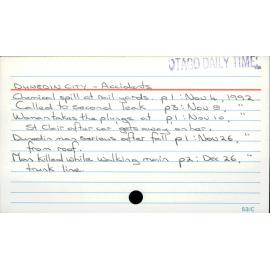 OTAGO DAILY TIMES
DUNEDIN CITY - Accidents
Chemical spill at rail yards. p1: Nov 4, 1992
Called to second leak p3: Nov 5, "
Woman takes the plunge at p1: Nov 10, "
St. Clair after car gets away on her.
Dunedin man serious after fall p1: Nov 26, "
from roof.
Man killed while walking main p2: Dec 26, "
trunk line
53/C